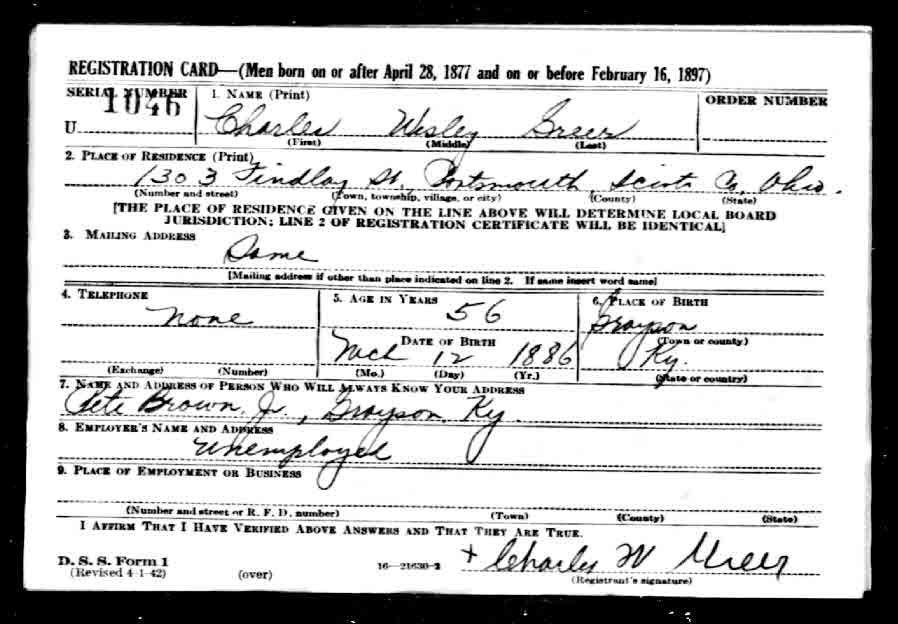 REGISTRATION CARD—(Men born on or after April 28, 1877 and on or before February 16, 1897)
SERIAL NUMBER 1. NAME (Print) ORDER NUMBER
1046
U Charles Wesley Greer
(First) (Middle) (Last)
2. PLACE OF RESIDENCE (Print)
1303 Findlay St, Portsmouth, Scioto Co, Ohio.
(Number and street) (Town, township, village, or city) (County) (State)
[THE PLACE OF RESIDENCE GIVEN ON THE LINE ABOVE WILL DETERMINE LOCAL BOARD
JURISDICTION; LINE 2 OF REGISTRATION CERTIFICATE WILL BE IDENTICAL]
3. MAILING ADDRESS
Same
[Mailing address if other than place indicated on line 2. If same insert word same]
4. TELEPHONE 5. AGE IN YEARS 6. PLACE OF BIRTH
None 56 Grayson
DATE OF BIRTH (Town or county)
Mch 12 1886 Ky.
(Exchange) (Number) (Mo.) (Day) (Yr.) (State or country)
7. NAME AND ADDRESS OF PERSON WHO WILL ALWAYS KNOW YOUR ADDRESS
Pete Brown, Jr., Grayson, Ky
8. EMPLOYER'S NAME AND ADDRESS
Unemployed
9. PLACE OF EMPLOYMENT OR BUSINESS
(Number and street or R. F. D. number) (Town) (County) (State)
I AFFIRM THAT I HAVE VERIFIED ABOVE ANSWERS AND THAT THEY ARE TRUE.
D. S. S. Form 1
(Revised 4-1-42) (over) 16—21630-2 + Charles W Greer
(Registrant's signature)